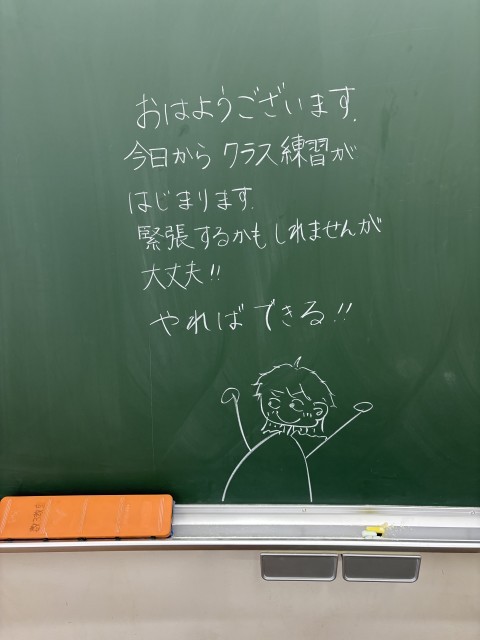 おはようございます.
今日から クラス練習が
はじまります.
緊張するかもしれませんが
大丈夫!!
やればできる!!